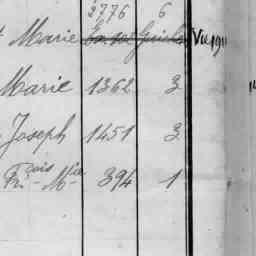 2776 6
Marie
Marie 1362 3
Joseph 1451 3
Frçois Mie 394 1